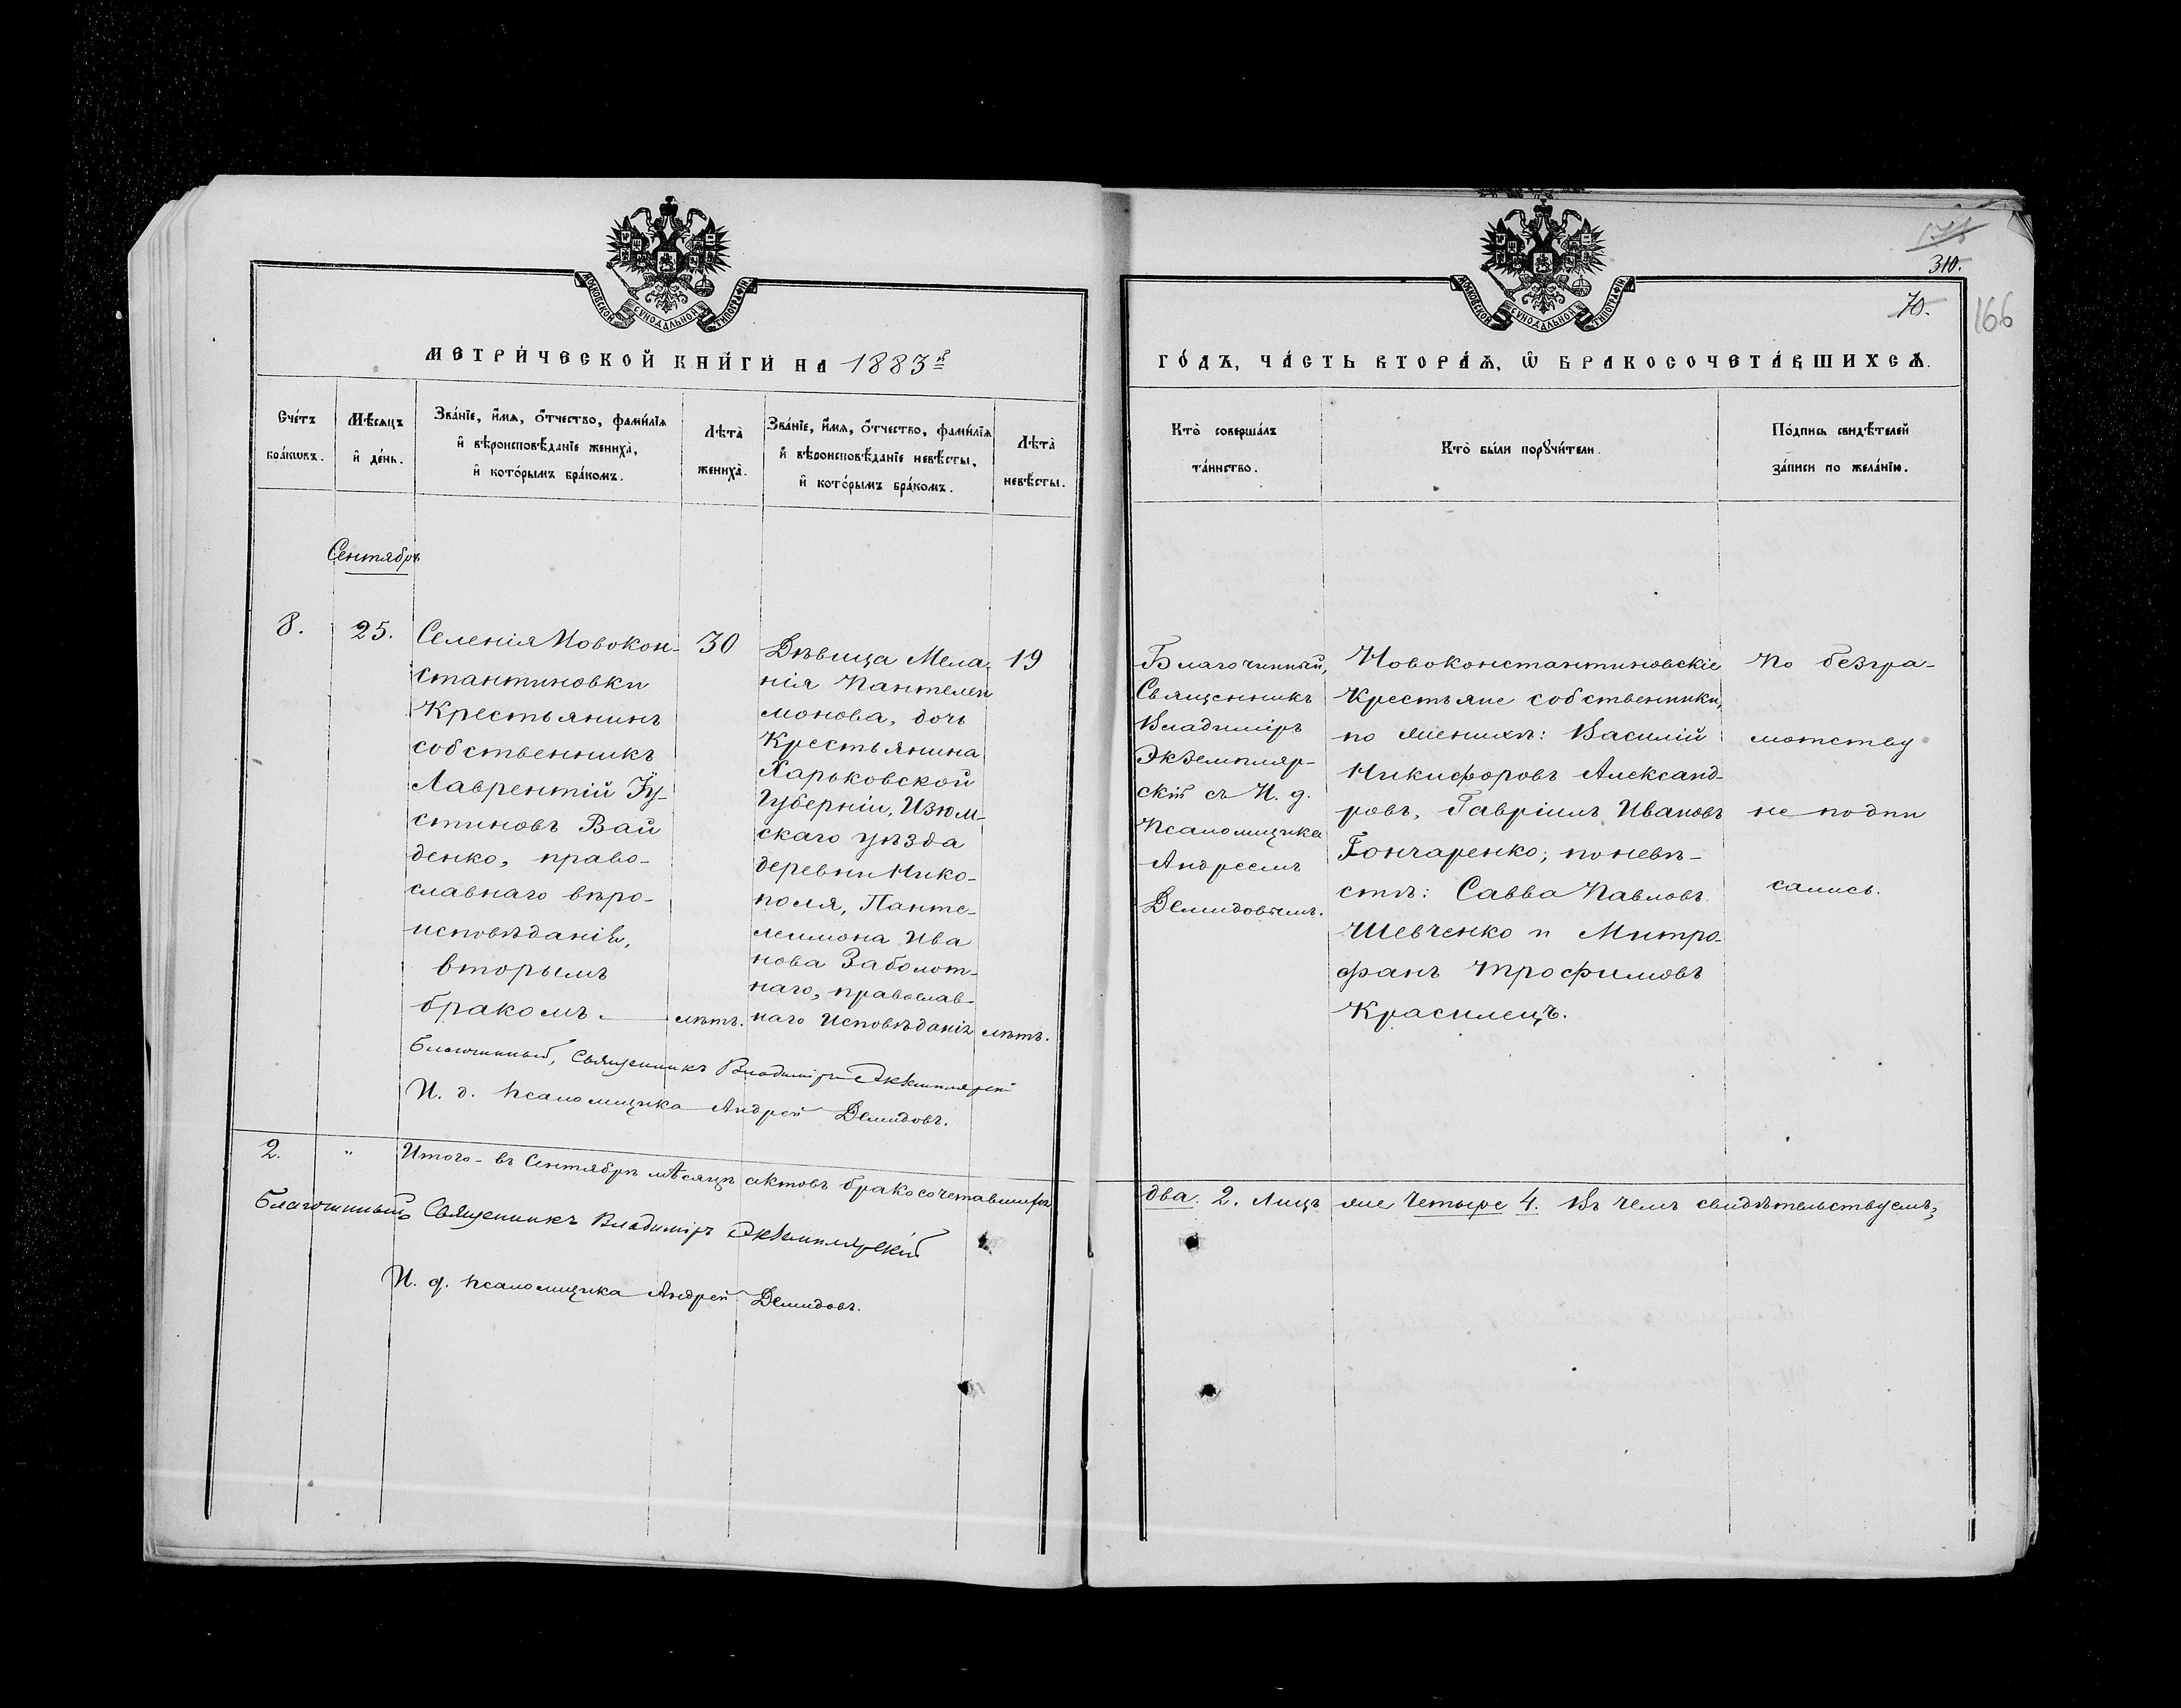 МОСКОВСКОЙ СѴНОДАЛЬНОЙ ТИПОГРАФІИ
МЕТРИ́ЧЕСКОЙ КНИ́ГИ НА 1883й
Сче́тъ бра́кѡвъ.
Мѣ́сяцъ и҆ де́нь.
Зва́нїе, и҆́мѧ, ѻ҆́тчество, фами́лїѧ
и҆ вѣроисповѣ́данїе жениха̀,
и҆ кото́рымъ бра́комъ.
Лѣта̀ жениха̀.
Зва́нїе, и҆́мѧ, ѻ҆́тчество, фами́лїѧ
и҆ вѣроисповѣ́данїе невѣ́сты,
и҆ кото́рымъ бра́комъ.
Лѣта̀ невѣ́сты.
Сентябрь
8.
25.
Селенія Новокон-
стантиновки
Крестьянинъ
собственникъ
Лаврентій Іу-
стиновъ Вай
денко, право-
славнаго вѣро-
исповѣданія,
вторымъ
бракомъ.
30
лѣтъ.
Дѣвица Мела-
нія Пантелеи
монова, дочь
Крестьянина
Харьковской
Губерніи, Изюм-
скаго уѣзда
деревни Нико-
поля, Панте-
леимона Ива
нова Заболот-
наго, православ-
наго исповѣданія
19
лѣтъ.
Благочинный, Священникъ Владиміръ Экземплярскій
И. д. Псаломщика Андрей Демидовъ.
2. " Итого - въ Сентябрѣ мѣсяцѣ актовъ бракосочетавшихся
Благочинный, Священникъ Владиміръ Экземплярскій
И. д. Псаломщика Андрей Демидовъ.
МОСКОВСКОЙ СѴНОДАЛЬНОЙ ТИПОГРАФІИ
310.
70.
166
ГО́ДЪ, ЧА́СТЬ ВТОРА́Ѧ, Ѡ҆ БРАКОСОЧЕТА́ВШИХСѦ.
Кто̀ соверша́лъ
та́инство.
Кто̀ бы́ли порꙋчи́тели.
По́дпись свидѣ́телей
за́писи по жела́нїю.
Благочинный,
Священникъ
Владиміръ
Экземпляр-
скій съ И. д.
Псаломщика
Андреемъ
Демидовымъ.
Новоконстантиновскіе
Крестьяне собственники,
по женихѣ: Василій
Никифоровъ Александ-
ровъ, Гавріилъ Ивановъ
Гончаренко; по невѣ-
стѣ: Савва Павловъ
Шевченко и Митро-
фанъ Трофимовъ
Красилецъ.
По безгра-
мотству
не подпи
сались.
два. 2. Лицъ же Четыре 4. Въ чемъ свидѣтельствуемъ,